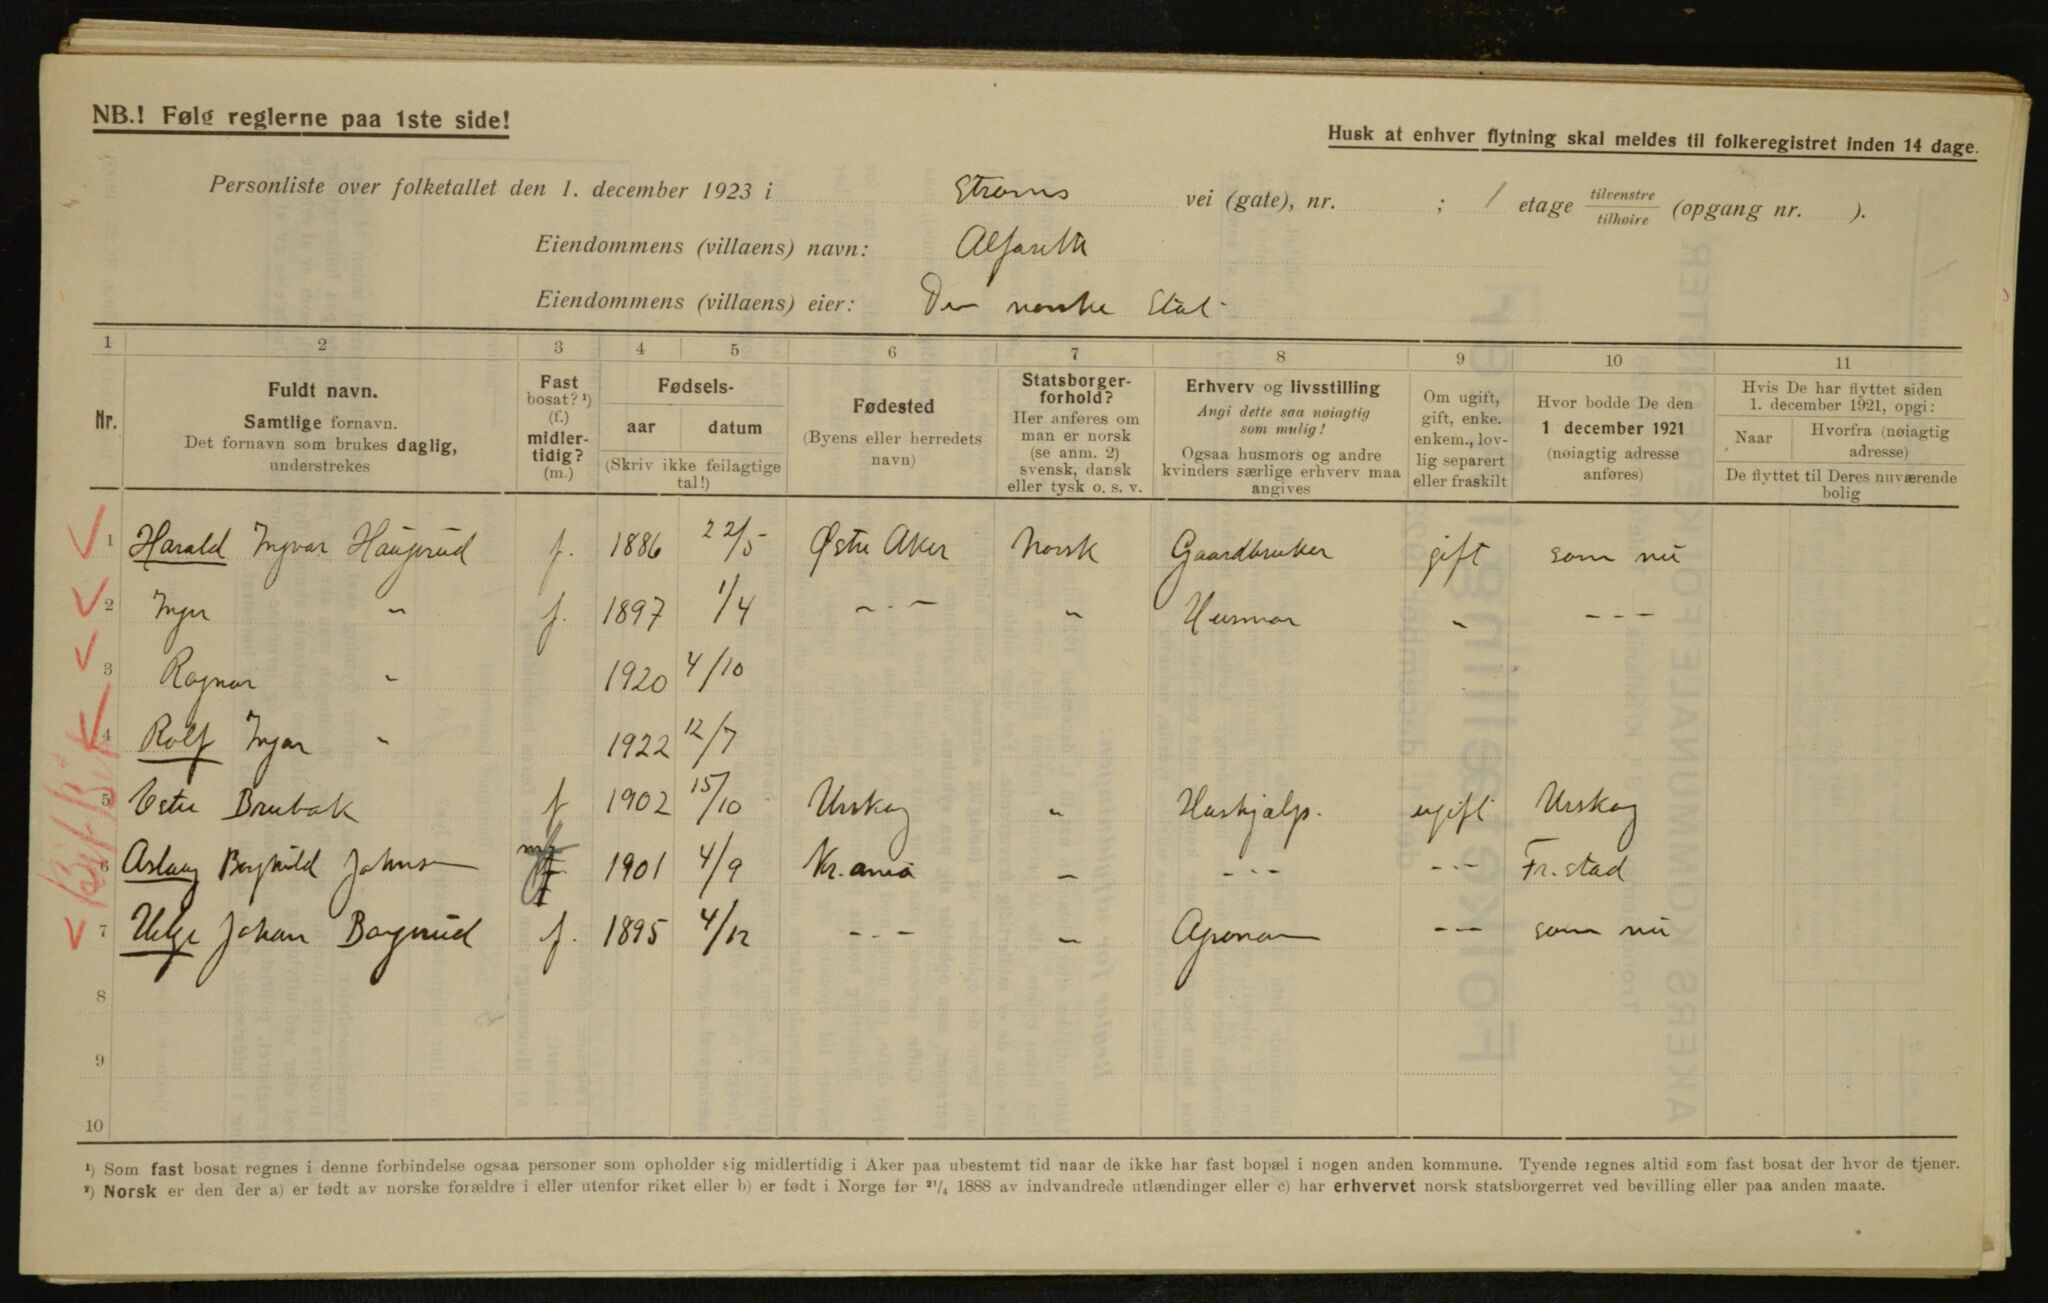 NB.! Følg reglerne paa 1ste side!
Husk at enhver flytning skal meldes til folkeregistret inden 14 dage.
Personliste over folketallet den 1. december 1923 i Strøms vei (gate), nr. ; 1 etage tilvenstre / tilhøire (opgang nr. ).
Eiendommens (villaens) navn: Alfaset
Eiendommens (villaens) eier: Den norske Stat
1 2 3 4 5 6 7 8 9 10 11
Nr.
Fuldt navn.
Samtlige fornavn.
Det fornavn som brukes daglig,
understrekes
Fast
bosat? ¹)
(f.)
midler-
tidig?
(m.)
Fødsels-
aar datum
(Skriv ikke feilagtige
tal!)
Fødested
(Byens eller herredets
navn)
Statsborger-
forhold?
Her anføres om
man er norsk
(se anm. 2)
svensk, dansk
eller tysk o. s. v.
Erhverv og livsstilling
Angi dette saa nøiagtig
som mulig!
Ogsaa husmors og andre
kvinders særlige erhverv maa
angives
Om ugift,
gift, enke.
enkem., lov-
lig separert
eller fraskilt
Hvor bodde De den
1 december 1921
(nøiagtig adresse
anføres)
Hvis De har flyttet siden
1. december 1921, opgi:
Naar
Hvorfra (nøiagtig
adresse)
De flyttet til Deres nuværende
bolig
1 Harald Ingvar Haugerud f. 1886 22/5 Østre Aker Norsk Gaardbruker gift som nu
2 Inger " f. 1897 1/4 - - - " Husmor " - - -
3 Ragnar " 1920 4/10
4 Rolf Ingar " 1922 12/7
5 Ester Brubak f 1902 15/10 Urskog " Hushjælp. ugift Urskog
6 Aslaug Borghild Johnsen f 1901 4/9 Kr.ania " - - - - - - Fr.stad
7 Helge Johan Borgerud f. 1895 4/12 - - - " Agronom - - som nu
8
9
10
¹) Som fast bosat regnes i denne forbindelse ogsaa personer som opholder sig midlertidig i Aker paa ubestemt tid naar de ikke har fast bopæl i nogen anden kommune. Tyende regnes altid som fast bosat der hvor de tjener.
²) Norsk er den der a) er født av norske forældre i eller utenfor riket eller b) er født i Norge før ²¹/₄ 1888 av indvandrede utlændinger eller c) har erhvervet norsk statsborgerret ved bevilling eller paa anden maate.